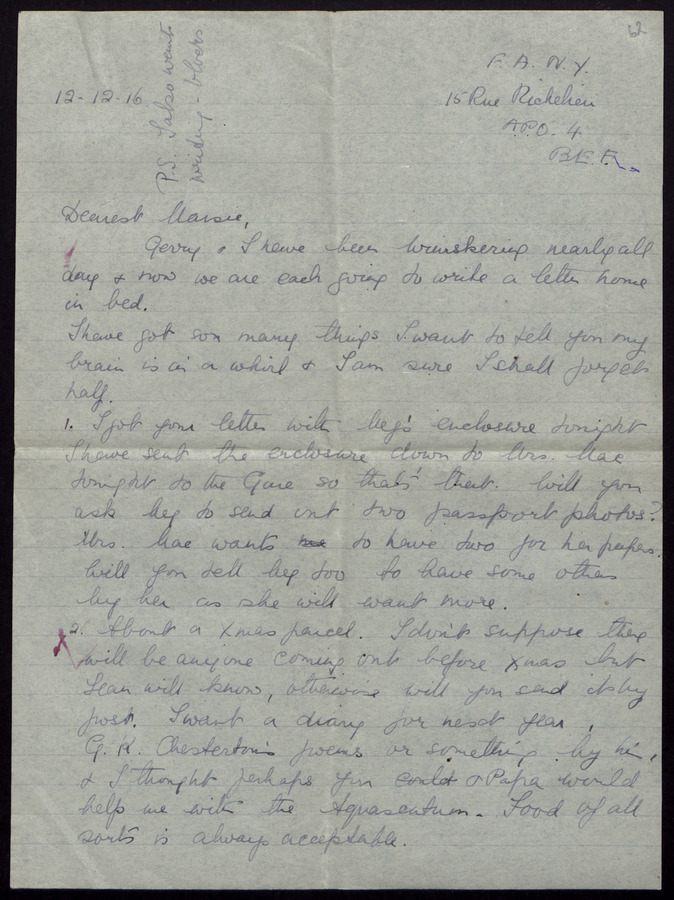 62
F. A. N. Y.
12-12-16
15 Rue Richelieu
A.P.O. 4.
B.E.F.
P.S. I also want
writing - blocks
Dearest Maisie,
Gerry & I have been winskering nearly all
day & now we are each going to write a letter home
in bed.
I have got son many things I want to tell you my
brain is in a whirl & I am sure I shall forget
half.
1. I got your letter with Meg's enclosure tonight
I have sent the enclosure down to Mrs. Mac
tonight to the Gare so that's that. Will you
ask Meg to send out two passport photos?
Mrs. Mac wants to have two for her papers.
Will you tell Meg too to have some others
by her as she will want more.
2. About a Xmas parcel. I don't suppose they
will be anyone coming out before Xmas but
Jean will know, otherwise will you send it by
post. I want a diary for next year,
G. K. Chesterton's poems or something by him,
& I thought perhaps you could & Papa would
help me with the Aquascutum. Food of all
sorts is always acceptable.